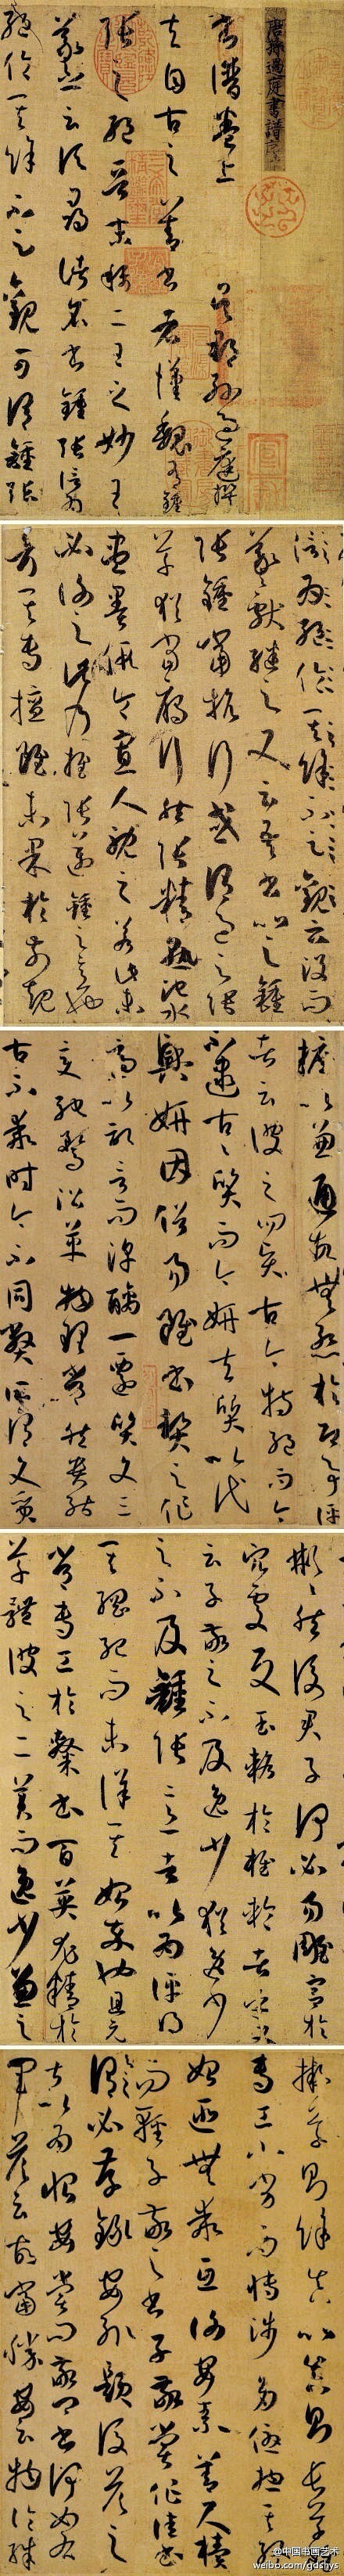 唐孫過庭書譜序
書譜卷上 吳郡孫過庭撰
夫自古之善書者漢魏有鍾
張之絕晉末稱二王之妙王
羲之云頃尋諸名書鍾張信為
絕倫其餘不足觀可謂鍾張
絕倫其餘不足觀云沒而
羲獻繼之又云吾書比之鍾
張鍾當抗行或謂過之張
草猶當雁行然張精熟池水
盡墨假令寡人耽之若此未
必謝之此乃推張邁鍾之意也
考其專擅雖未果於前規
摭以兼通故無慚於即事評
者云彼之四賢古今特絕而今
不逮古古質而今妍夫質以代
興妍因俗易雖書契之作
適以記言而淳醨一遷質文三
變馳騖沿革物理常然貴能
古不乖時今不同弊所謂文質
彬彬然後君子何必易雕宮於
穴處反玉輅於椎輪者乎又
云子敬之不及逸少猶逸少
之不及鍾張意者以為評得
其綱紀而未詳其始卒也且元
常專工於隸書百英尤精於
草體彼之二美而逸少兼之
擬草則餘真比真則長草雖
專工小劣而博涉多優總其終
始匪無乖互謝安素善尺牘
而輕子敬之書子敬嘗作佳書
與之謂必存錄安輒題後答之
甚以為恨安嘗問敬卿書何如右
軍答云故當勝安云物論殊
@中国书画艺术
weibo.com/gdshys